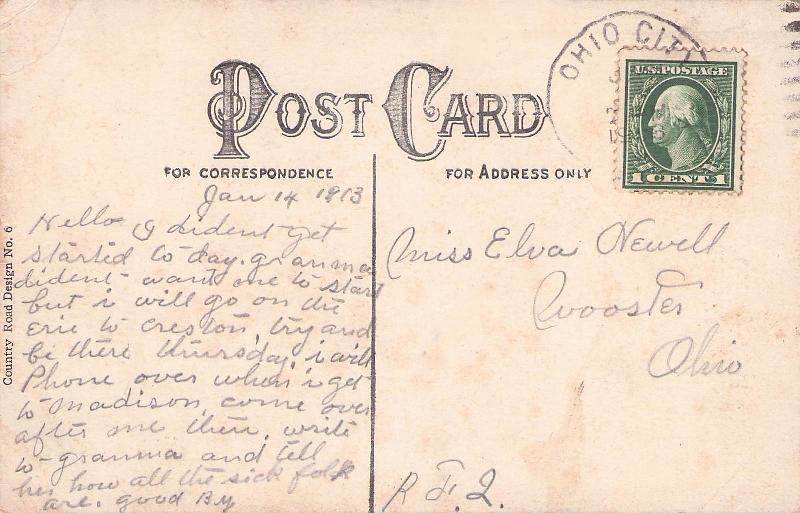 POST CARD
FOR CORRESPONDENCE
FOR ADDRESS ONLY
OHIO CITY
U.S. POSTAGE
1 CENT 1
Country Road Design No. 6
Jan 14 1913
Hello I dident get
started to day. granma
dident want me to start
but i will go on the
Erie to Creston, try and
be there thursday, i will
Phone over when i get
to madison, come over
after me then, write
to granma and tell
her how all the sick folk
are. good By
Miss Elva Newell
Wooster
Ohio
R F. 2.